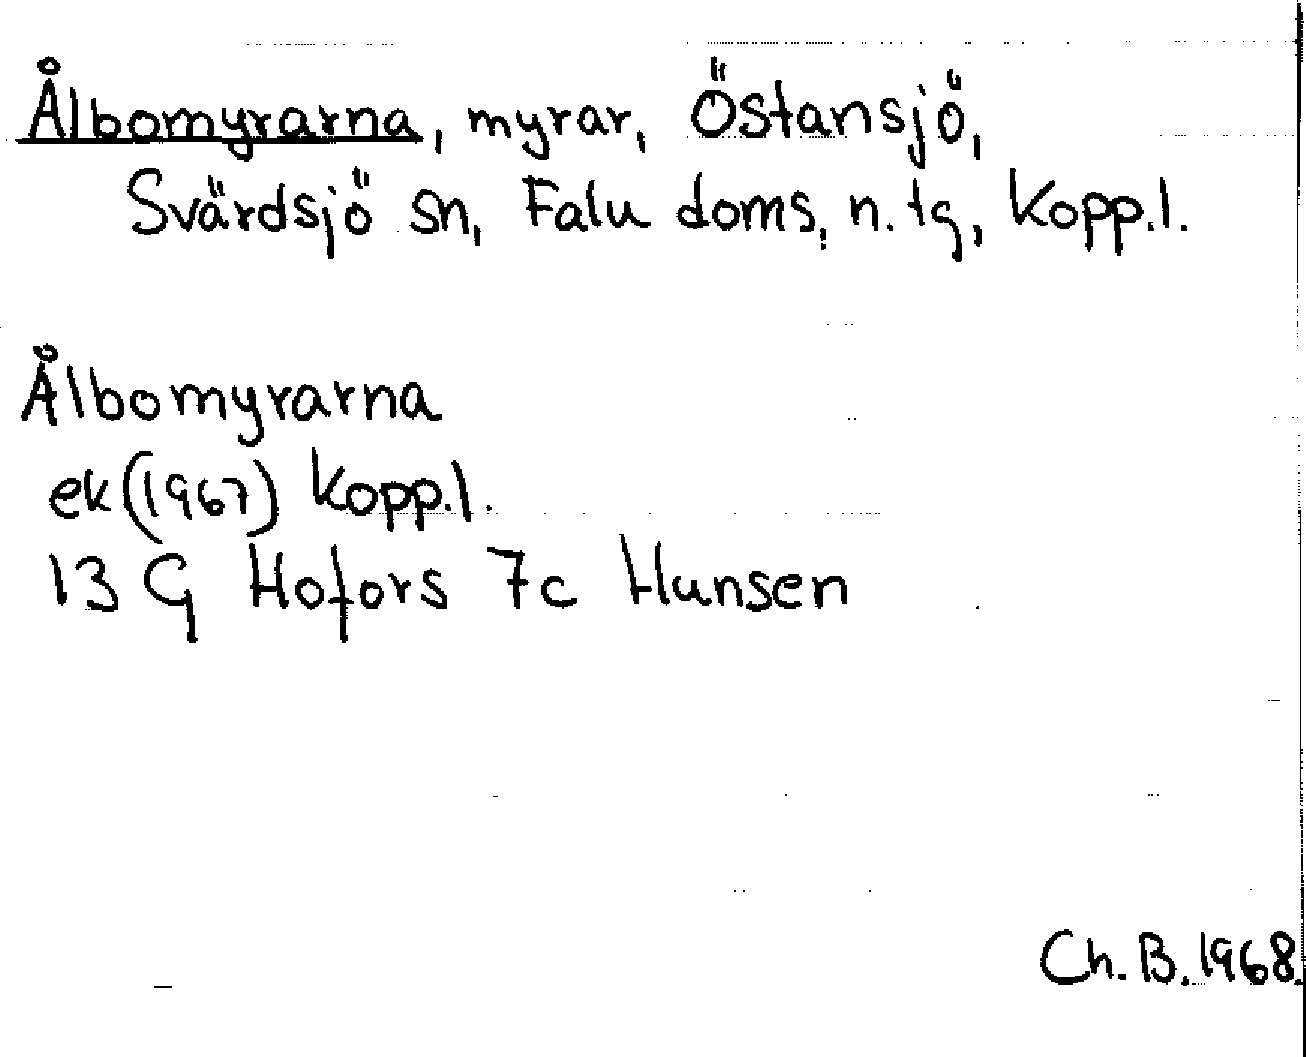 Ålbomyrarna, myrar, Östansjö,
Svärdsjö sn, Falu doms. n. tg, Kopp.l.
Ålbomyrarna
ek (1967) Kopp.l.
13 G Hofors 7c Hunsen
Ch. B. 1968.